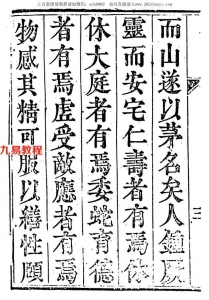 而山遂以茅名矣人鍾厥
靈而安宅仁壽者有焉休
休大庭者有焉委蛇有德
者有焉虛受敵應者有焉
物感其精可服以繕性頤
九易教程网